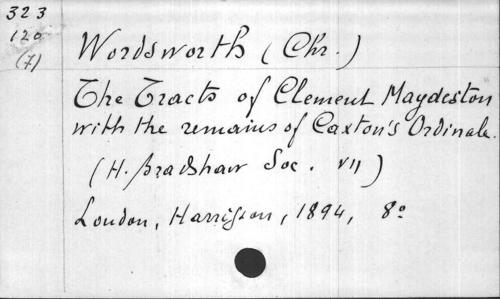 323
120
(7)
Wordsworth (Chr.)
The Tracts of Clement Maydeston
with the remains of Caxton's Ordinale.
(H. Bradshaw Soc. VII)
London, Harrison, 1894, 8º